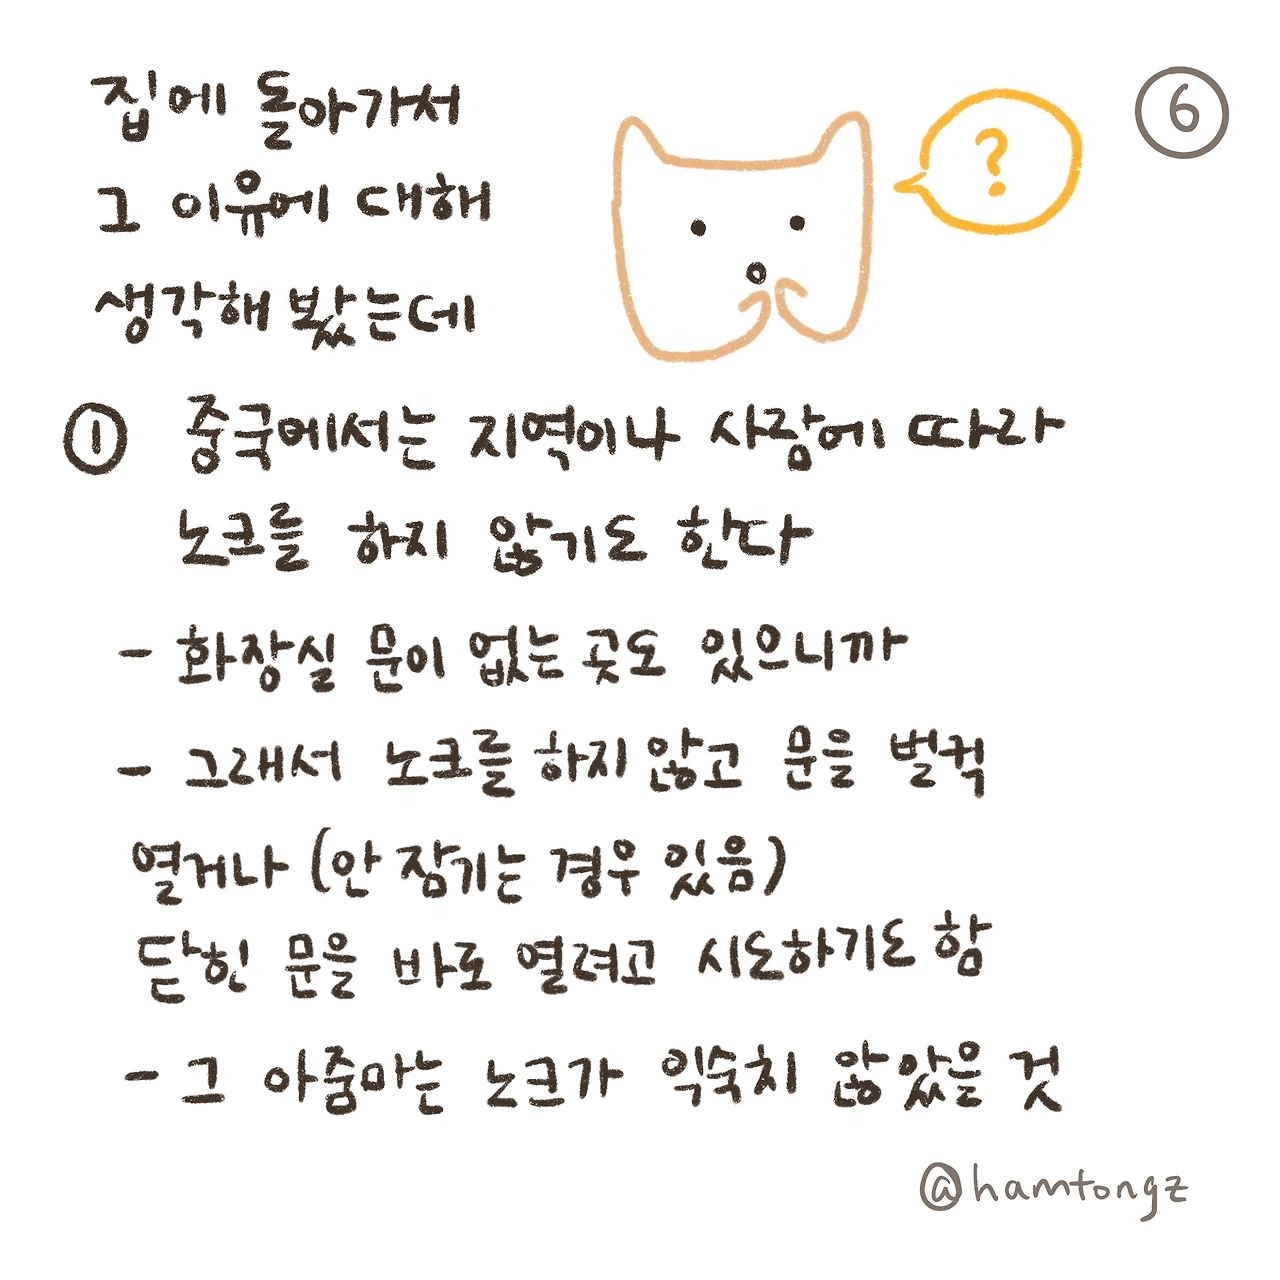 집에 돌아가서
그 이유에 대해
생각해 봤는데
?
6
① 중국에서는 지역이나 사람에 따라
노크를 하지 않기도 한다
- 화장실 문이 없는 곳도 있으니까
- 그래서 노크를 하지 않고 문을 벌컥
열거나 (안 잠기는 경우 있음)
닫힌 문을 바로 열려고 시도하기도 함
- 그 아줌마는 노크가 익숙치 않았을 것
@hamtongz